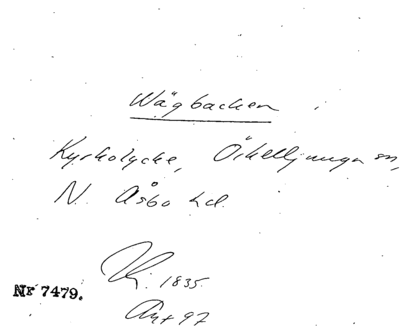 Wägbacken
Kyrkolycke, Örkelljunga sn,
N. Åsbo hd.
1835
Nr 7479.
97